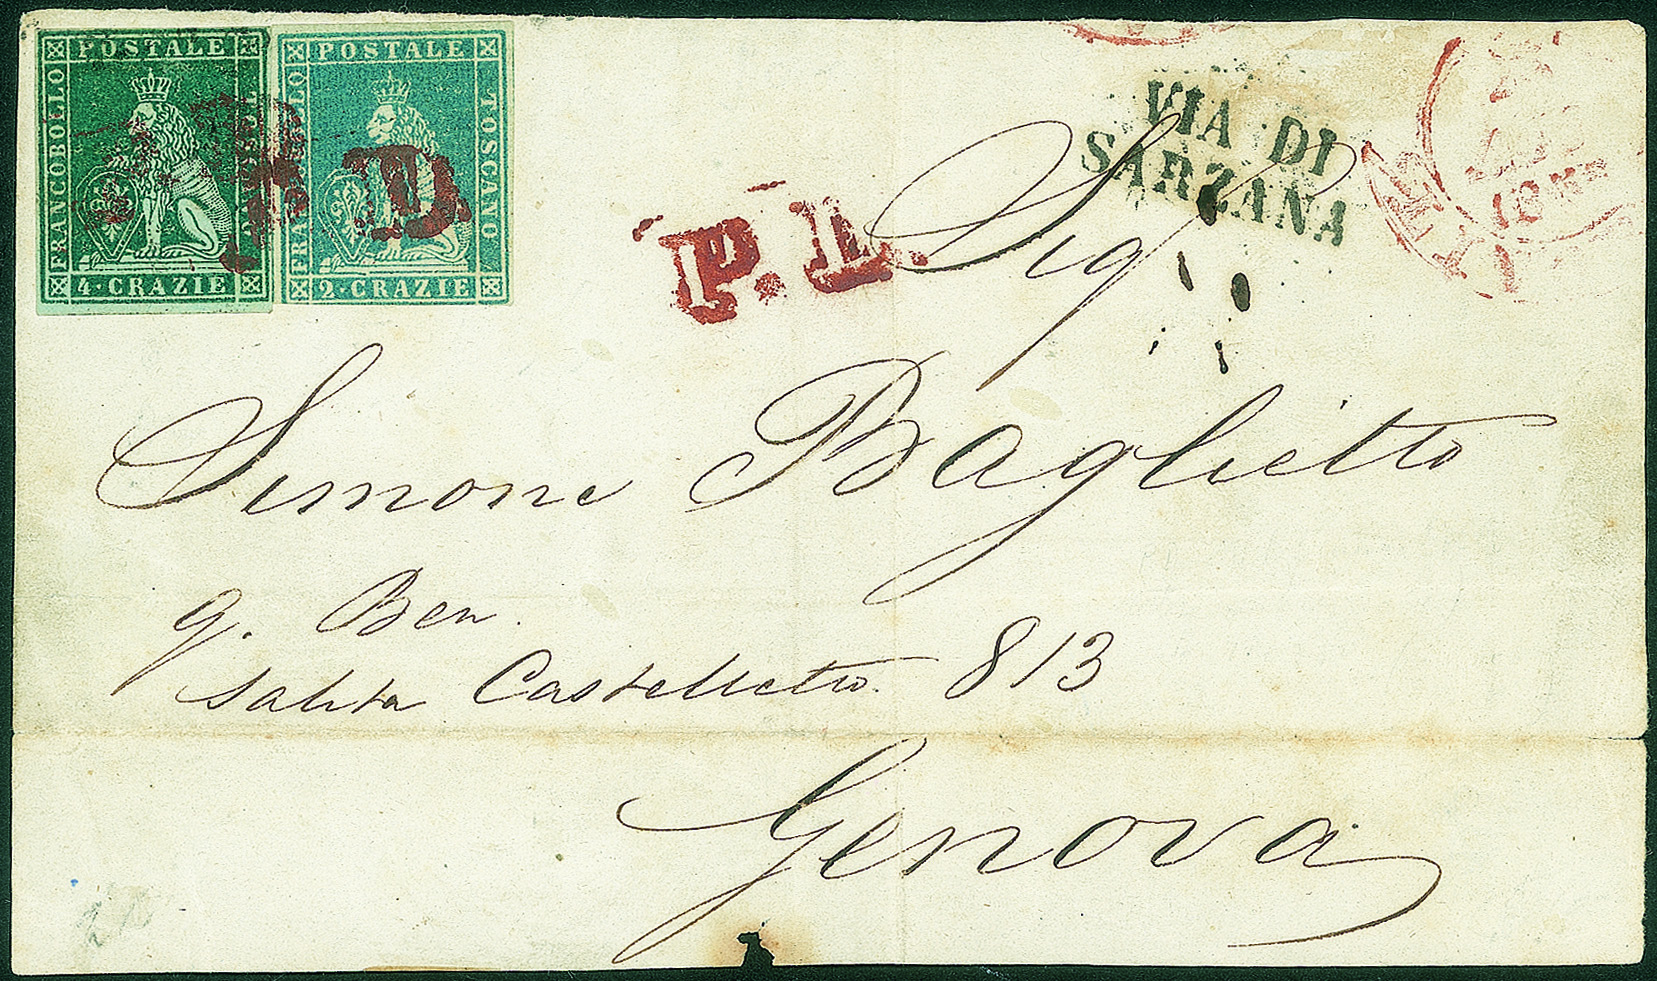 POSTALE
FRANCOBOLLO
4·CRAZIE
POSTALE
FRANCOBOLLO
TOSCANO
2·CRAZIE
P D
P.L.
VIA DI
SARZANA
Sigr
Simone Baglietto
q. Ben.
Salita Castelletto. 813
Genova